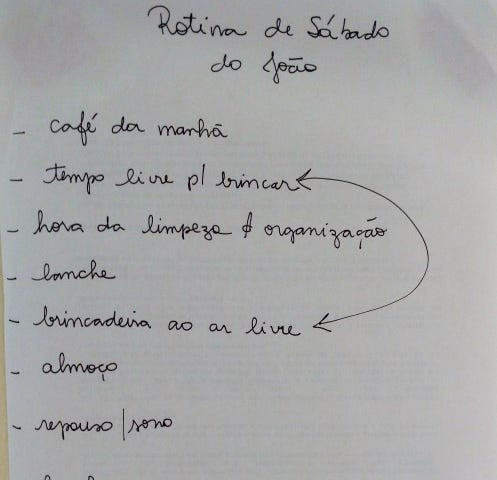 Rotina de Sábado
do João
- café da manhã
- tempo livre p/ brincar
- hora da limpeza & organização
- lanche
- brincadeira ao ar livre
- almoço
- repouso/sono